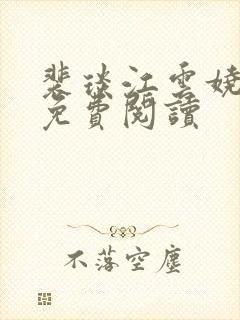 裴琰江雪嬈
免費閱讀
不落空塵